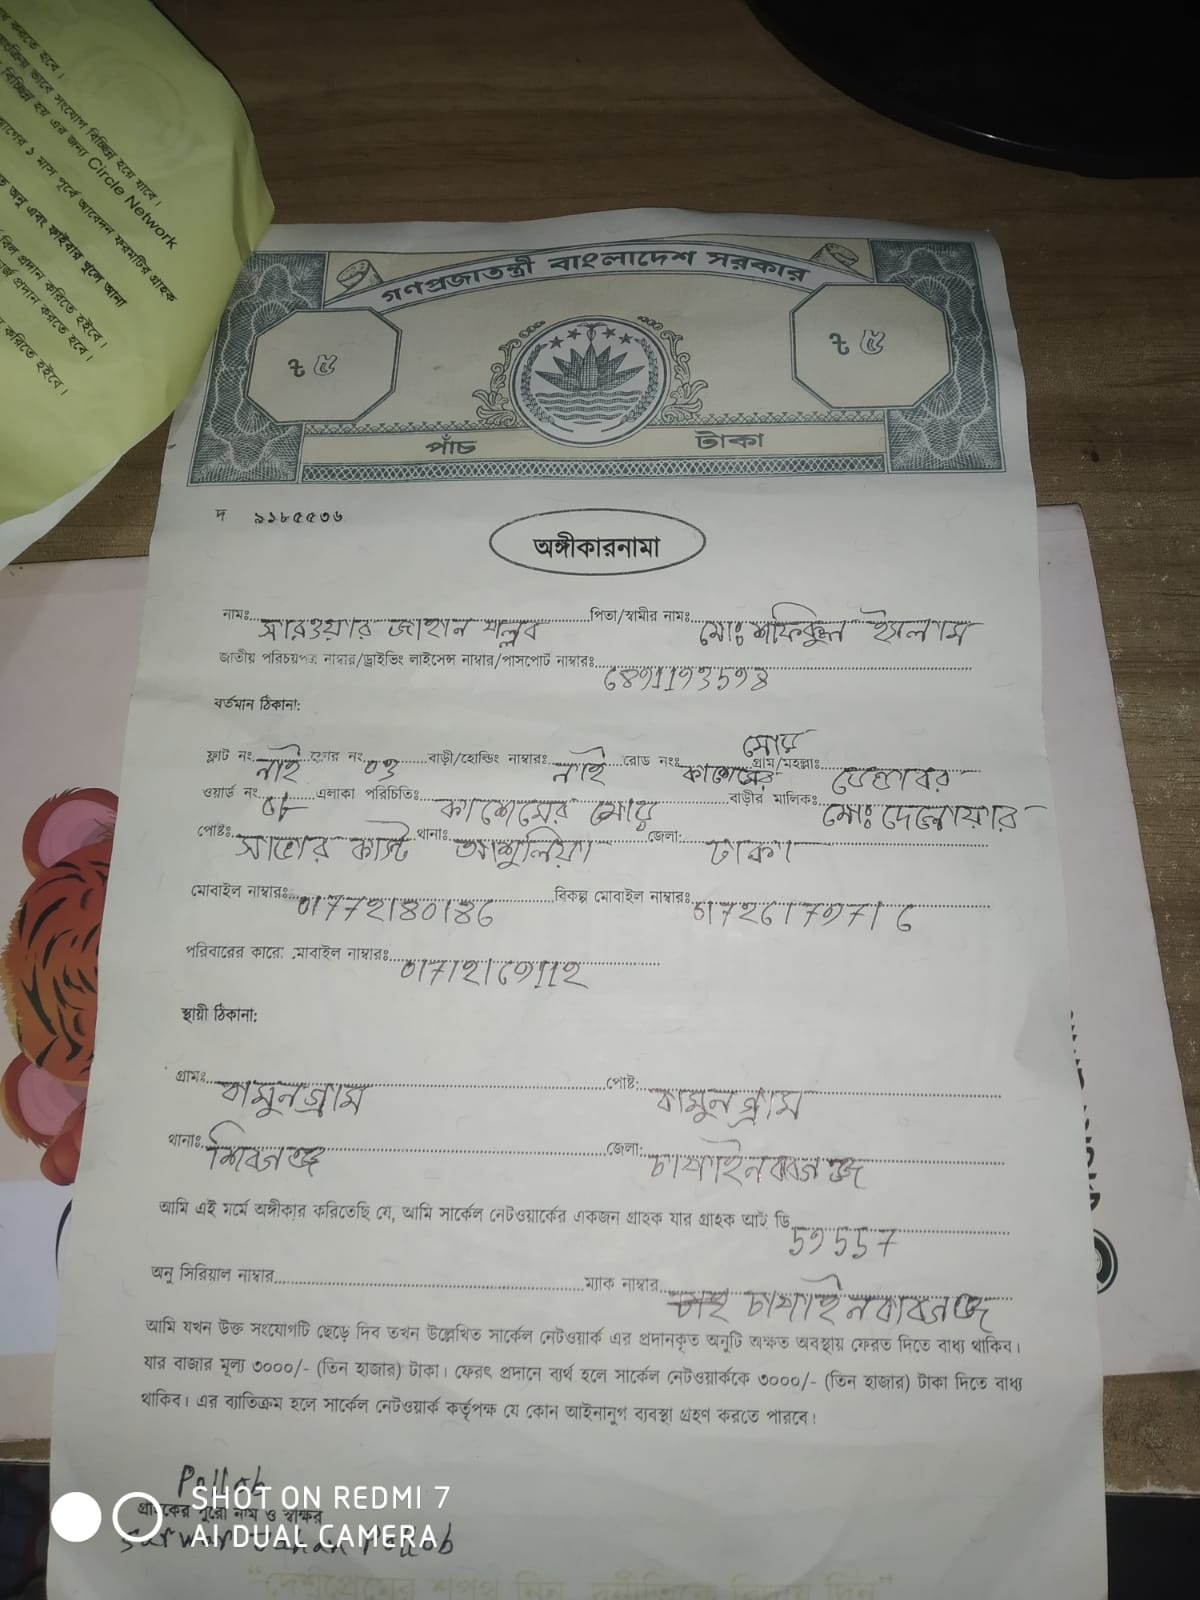 গণপ্রজাতন্ত্রী বাংলাদেশ সরকার
৳ ৫ ৳ ৫
পাঁচ টাকা
দ ৯১৮৫৫৩৬
অঙ্গীকারনামা
নামঃ সারওয়ার জাহান পল্লব পিতা/স্বামীর নামঃ মোঃ শফিকুল ইসলাম
জাতীয় পরিচয়পত্র নাম্বার/ড্রাইভিং লাইসেন্স নাম্বার/পাসপোর্ট নাম্বারঃ
বর্তমান ঠিকানা:
মোড়
ফ্লাট নং নাই ফ্লোর নং বাড়ী/হোল্ডিং নাম্বারঃ নাই রোড নংঃ কাশেমের গ্রাম/মহল্লাঃ
ওয়ার্ড নং এলাকা পরিচিতিঃ কাশেমের মোড় বাড়ীর মালিকঃ মোঃ দেলোয়ার
পোষ্টঃ সাভার ক্যান্ট থানাঃ আশুলিয়া জেলা: ঢাকা
মোবাইল নাম্বারঃ বিকল্প মোবাইল নাম্বারঃ
পরিবারের কারো মোবাইল নাম্বারঃ
স্থায়ী ঠিকানা:
গ্রামঃ বামুনগ্রাম পোষ্ট: বামুনগ্রাম
থানাঃ শিবগঞ্জ জেলা: চাপাইনবাবগঞ্জ
আমি এই মর্মে অঙ্গীকার করিতেছি যে, আমি সার্কেল নেটওয়ার্কের একজন গ্রাহক যার গ্রাহক আই ডি
অনু সিরিয়াল নাম্বার ম্যাক নাম্বার চাপাইনবাবগঞ্জ
আমি যখন উক্ত সংযোগটি ছেড়ে দিব তখন উল্লেখিত সার্কেল নেটওয়ার্ক এর প্রদানকৃত অনুটি অক্ষত অবস্থায় ফেরত দিতে বাধ্য থাকিব।
যার বাজার মূল্য ৩০০০/- (তিন হাজার) টাকা। ফেরৎ প্রদানে ব্যর্থ হলে সার্কেল নেটওয়ার্ককে ৩০০০/- (তিন হাজার) টাকা দিতে বাধ্য
থাকিব। এর ব্যাতিক্রম হলে সার্কেল নেটওয়ার্ক কর্তৃপক্ষ যে কোন আইনানুগ ব্যবস্থা গ্রহণ করতে পারবে।
Pollob
গ্রাহকের পুরো নাম ও স্বাক্ষর
Sarwar Jahan Pollob
SHOT ON REDMI 7
AI DUAL CAMERA
"দেশপ্রেমের শপথ নিন, দুর্নীতিকে বিদায় দিন"
করতে হবে।
ভাবে সংযোগ বিচ্ছিন্ন হয়ে যাবে।
বিচ্ছিন্ন হয় এর জন্য Circle Network
১ মাস পূর্বে আবেদন ফরমটির গ্রাহক
অনু এবং ফাইবার খুলে আনা
বিল প্রদান করিতে হইবে।
চার্জ প্রদান করতে হবে।
করিতে হইবে।